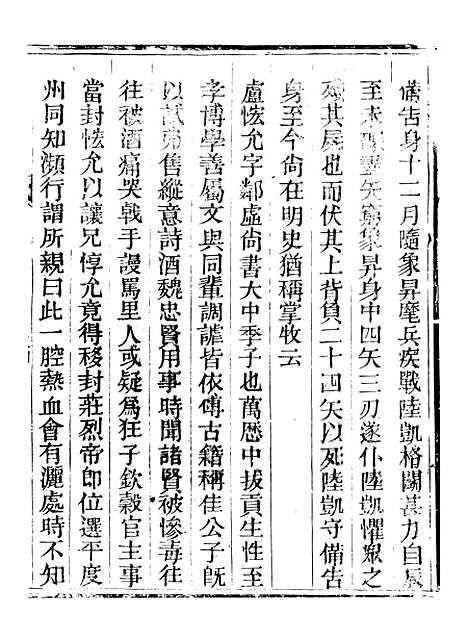 備告身十二月隨象昇麾兵疾戰陸凱格鬭甚力自辰
至未酉盡矢窮象昇身中四矢三刃遂仆陸凱懼眾之
殘其屍也而伏其上背負二十四矢以死陸凱守備告
身至今尚在明史猶稱掌牧云
盧恔允字鄰虛尚書大中季子也萬歷中拔貢生性至
孝博學善屬文與同輩調謔皆依傳古籍稱佳公子旣
以試弗售縱意詩酒魏忠賢用事時聞諸賢被慘毒往
往被酒痛哭戟手謾罵里人或疑爲狂子欽穀官主事
當封恔允以讓兄惇允竟得移封莊烈帝卽位選平度
州同知瀕行謂所親曰此一腔熱血會有灑處時不知